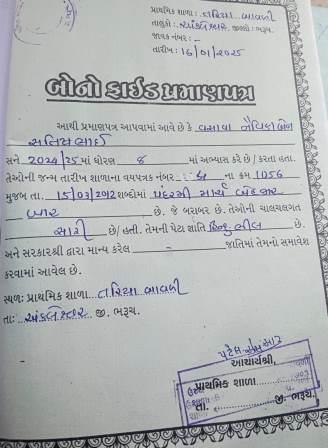 પ્રાથમિક શાળા : તરિયા આવલી
તાલુકો : અંકલેશ્વર જીલ્લો : ભરૂચ.
જાવક નંબર : -
તારીખ : 16/01/2025
બોનોફાઈડ પ્રમાણપત્ર
આથી પ્રમાણપત્ર આપવામાં આવે છે કે વસાવા
સતિષભાઈ
સને 2024/25 માં ધોરણ 8 માં અભ્યાસ કરે છે / કરતા હતા.
તેઓની જન્મ તારીખ શાળાના વયપત્રક નંબર 4 ના ક્રમ 1056
મુજબ તા. 15/03/2012 શબ્દોમાં પંદરમી માર્ચ બે હજાર
બાર છે. જે બરાબર છે. તેઓની ચાલચલગત
સારી છે/ હતી. તેમની પેટા જ્ઞાતિ હિન્દુ ભીલ છે.
અને સરકારશ્રી દ્વારા માન્ય કરેલ - જાતિમાં તેમનો સમાવેશ
કરવામાં આવેલ છે.
સ્થળ: પ્રાથમિક શાળા તરિયા આવલી
તા: અંકલેશ્વર. જી. ભરૂચ.
આચાર્યશ્રી,
પ્રાથમિક શાળા
તા. જી. ભરૂચ.